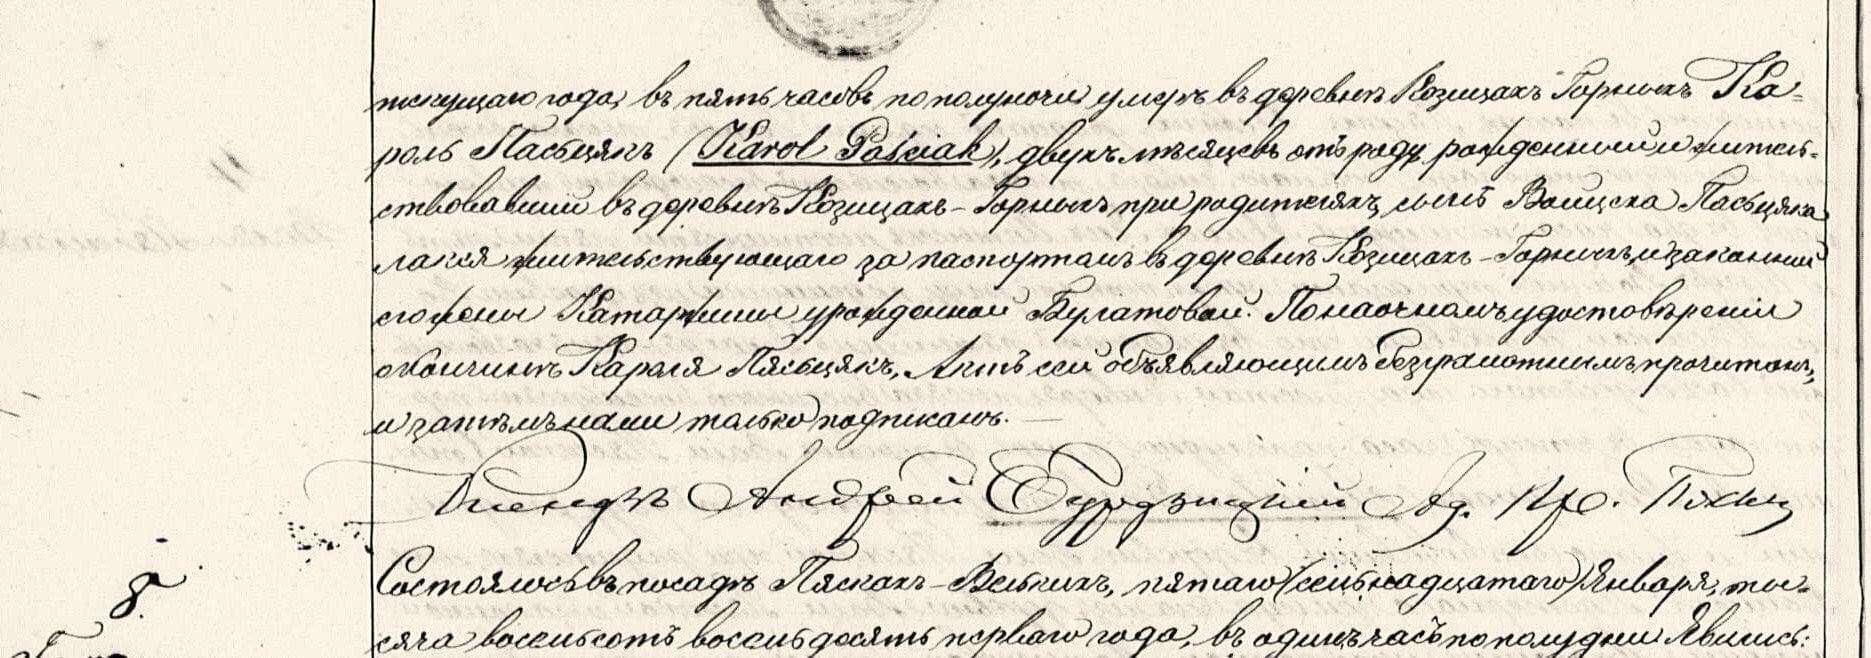 текущаго года, въ пять часовъ по полуночи умеръ въ деревнѣ Козицахъ Горныхъ Ка=
роль Пасьцякъ (Karol Paściak), двухъ мѣсяцевъ отъ роду, рожденный и житель-
ствовавшій въ деревнѣ Козицахъ-Горныхъ при родителяхъ, сынъ Войцеха Пасьцяка
лакея жительствующаго за паспортомъ въ деревнѣ Козицахъ-Горныхъ и законной
его жены Катаржины урожденной Булатовой. По наочномъ удостовѣреніи
о кончинѣ Кароля Пасьцякъ, Актъ сей объявляющимъ безграмотнымъ прочитанъ,
и затѣмъ нами только подписанъ.
Ксендзъ Андрей Ад. Пр. Пяски
8.
Состоялось въ посадѣ Пяскахъ-Велькихъ, пятаго (семьнадцатаго) Января, ты-
сяча восемьсотъ восемьдесятъ перваго года, въ одинъ часъ по полудни Явились: